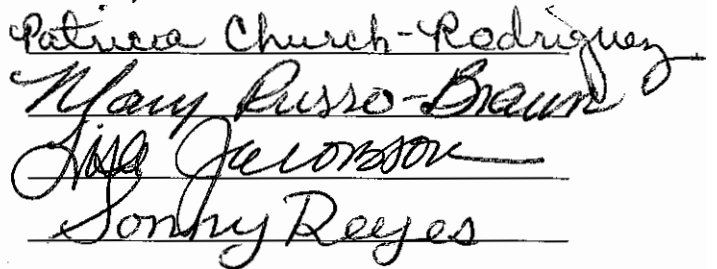 Patricia Church-Rodriguez
Mary Russo-Braun
Lisa Jacobson
Sonny Reyes